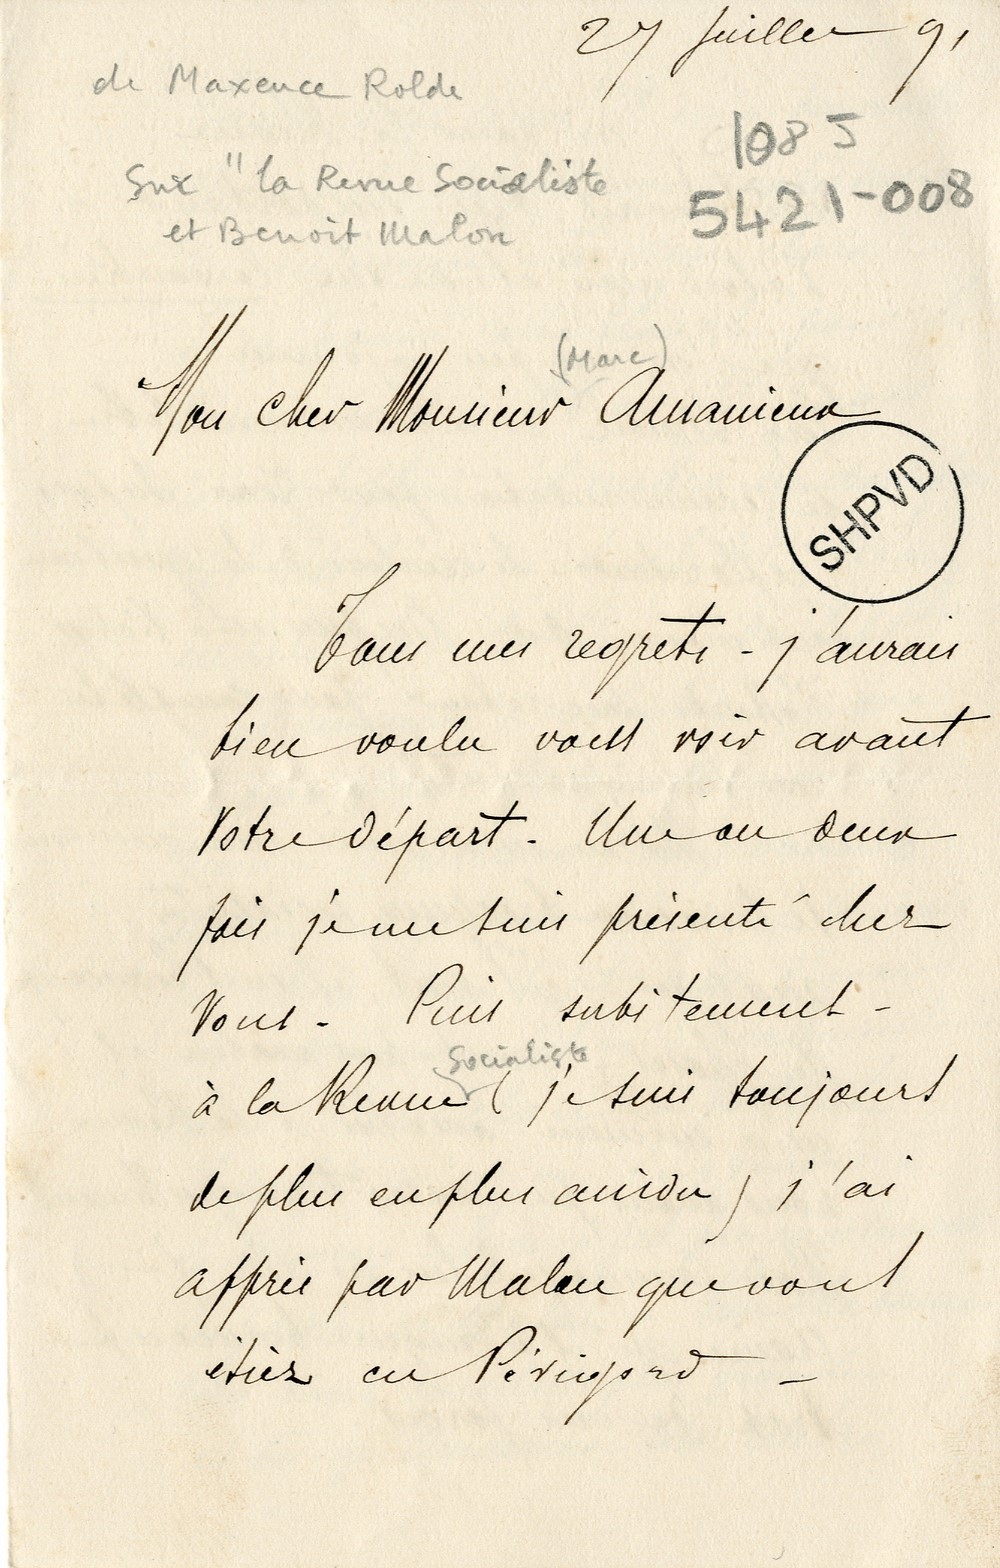 27 Juillet 91
de Maxence Rolde
sur "la Revue Socialiste
et Benoit Malon
108 J
5421-008
(Marc)
Mon cher Monsieur Amanieux
SHPVD
Tous mes regrets - j'aurais
bien voulu vous voir avant
votre départ. Une ou deux
fois je me suis présenté chez
vous - Puis subitement -
Socialiste
à la Revue ( je suis toujours
de plus en plus assidu ) j'ai
appris par Malon que vous
étiez en Périgord -